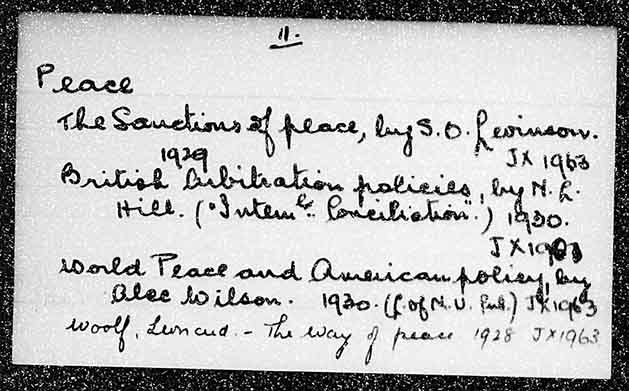 11.
Peace
The Sanctions of peace, by S. O. Levinson.
1929 JX 1963
British Arbitration policies, by N. L.
Hill. ("Intern'l. Conciliation".) 1930.
JX1903
World Peace and American policy, by
Alec Wilson. 1930. (L. of N. U. Pub.) JX1963
Woolf, Leonard. - The way of peace 1928 JX1963